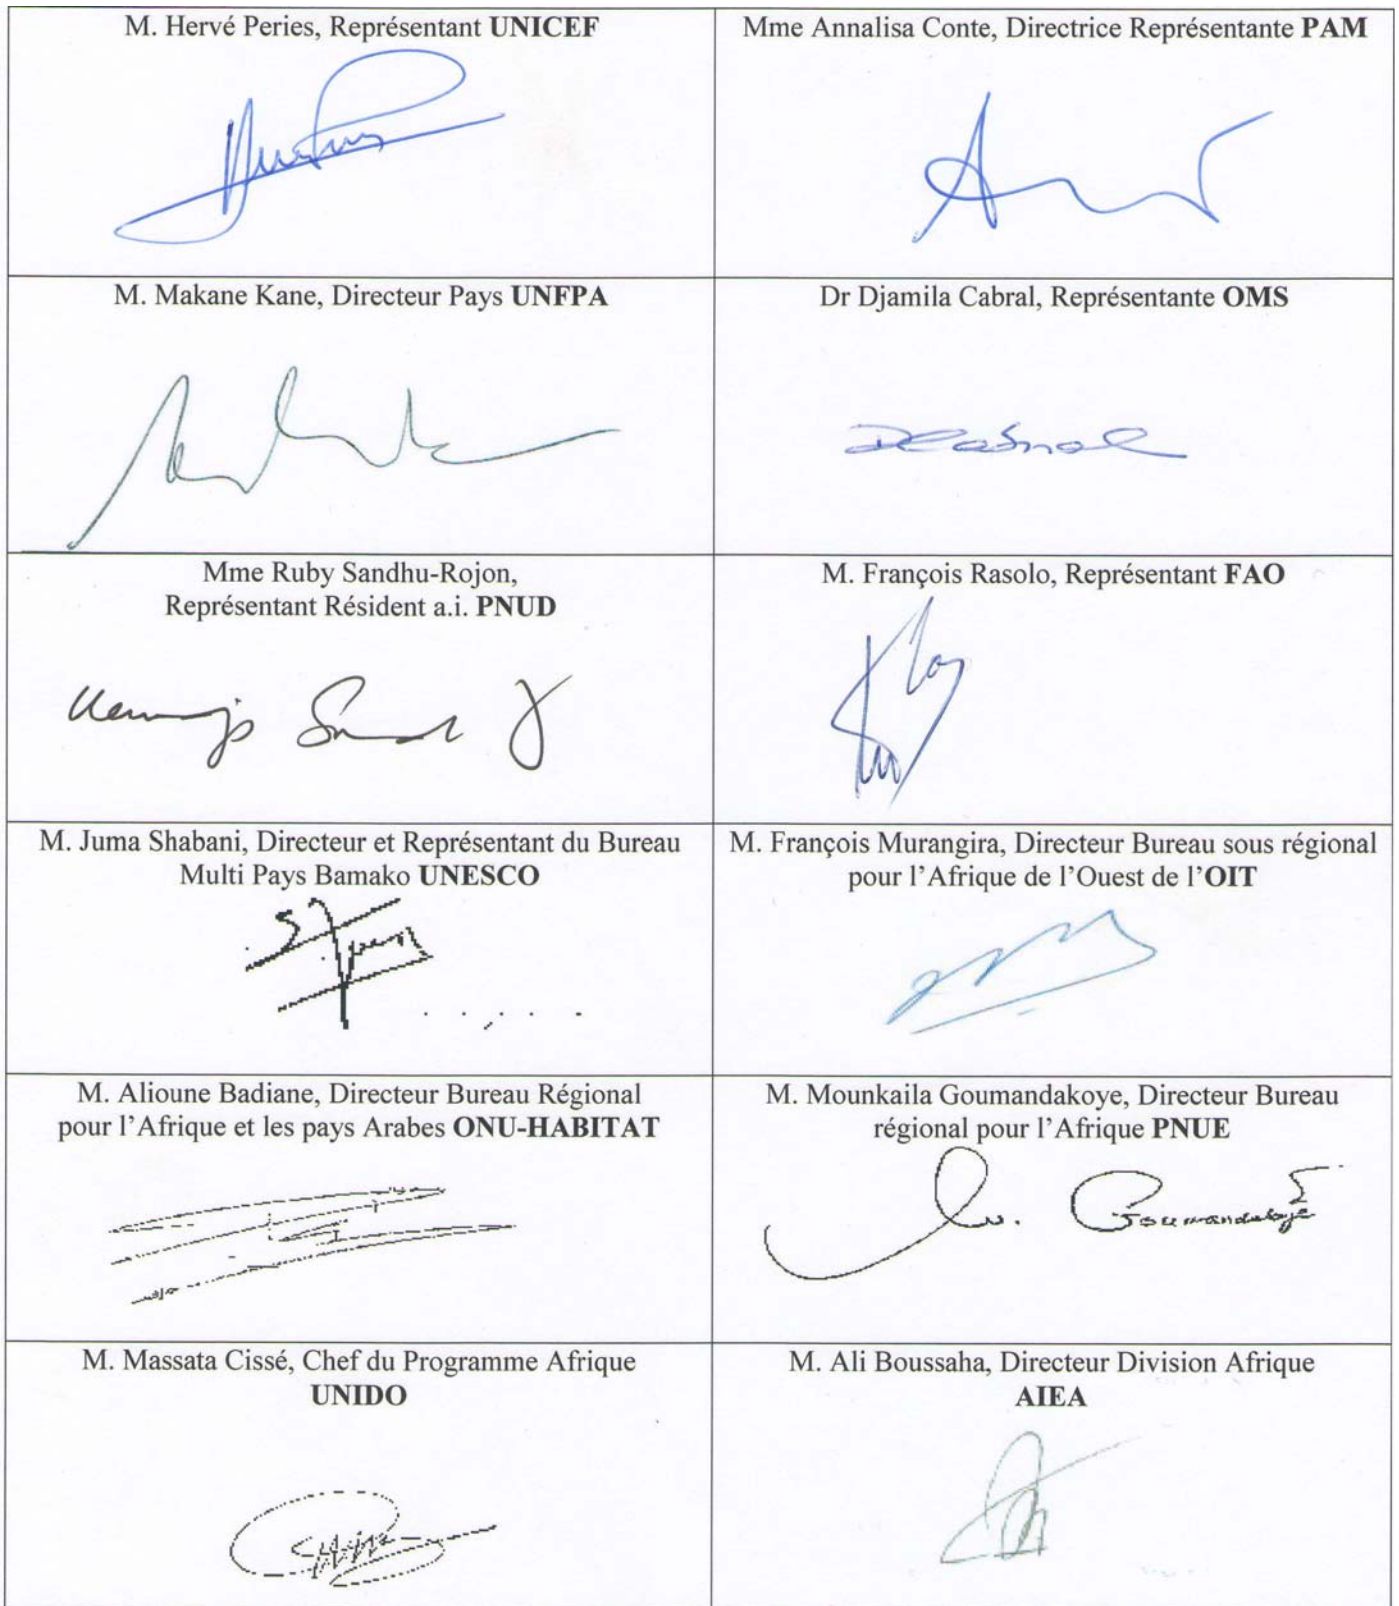 M. Hervé Peries, Représentant UNICEF
Mme Annalisa Conte, Directrice Représentante PAM
M. Makane Kane, Directeur Pays UNFPA
Dr Djamila Cabral, Représentante OMS
DCabral
Mme Ruby Sandhu-Rojon,
Représentant Résident a.i. PNUD
M. François Rasolo, Représentant FAO
M. Juma Shabani, Directeur et Représentant du Bureau
Multi Pays Bamako UNESCO
M. François Murangira, Directeur Bureau sous régional
pour l'Afrique de l'Ouest de l'OIT
M. Alioune Badiane, Directeur Bureau Régional
pour l'Afrique et les pays Arabes ONU-HABITAT
M. Mounkaila Goumandakoye, Directeur Bureau
régional pour l'Afrique PNUE
Goumandakoye
M. Massata Cissé, Chef du Programme Afrique
UNIDO
M. Ali Boussaha, Directeur Division Afrique
AIEA